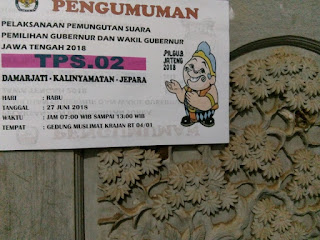 PENGUMUMAN
PELAKSANAAN PEMUNGUTAN SUARA
PEMILIHAN GUBERNUR DAN WAKIL GUBERNUR
JAWA TENGAH 2018
TPS.02
PILGUB
JATENG
2018
DAMARJATI - KALINYAMATAN - JEPARA
HARI : RABU
TANGGAL : 27 JUNI 2018
WAKTU : JAM 07:00 WIB SAMPAI 13:00 WIB
TEMPAT : GEDUNG MUSLIMAT KRAJAN RT 04/01